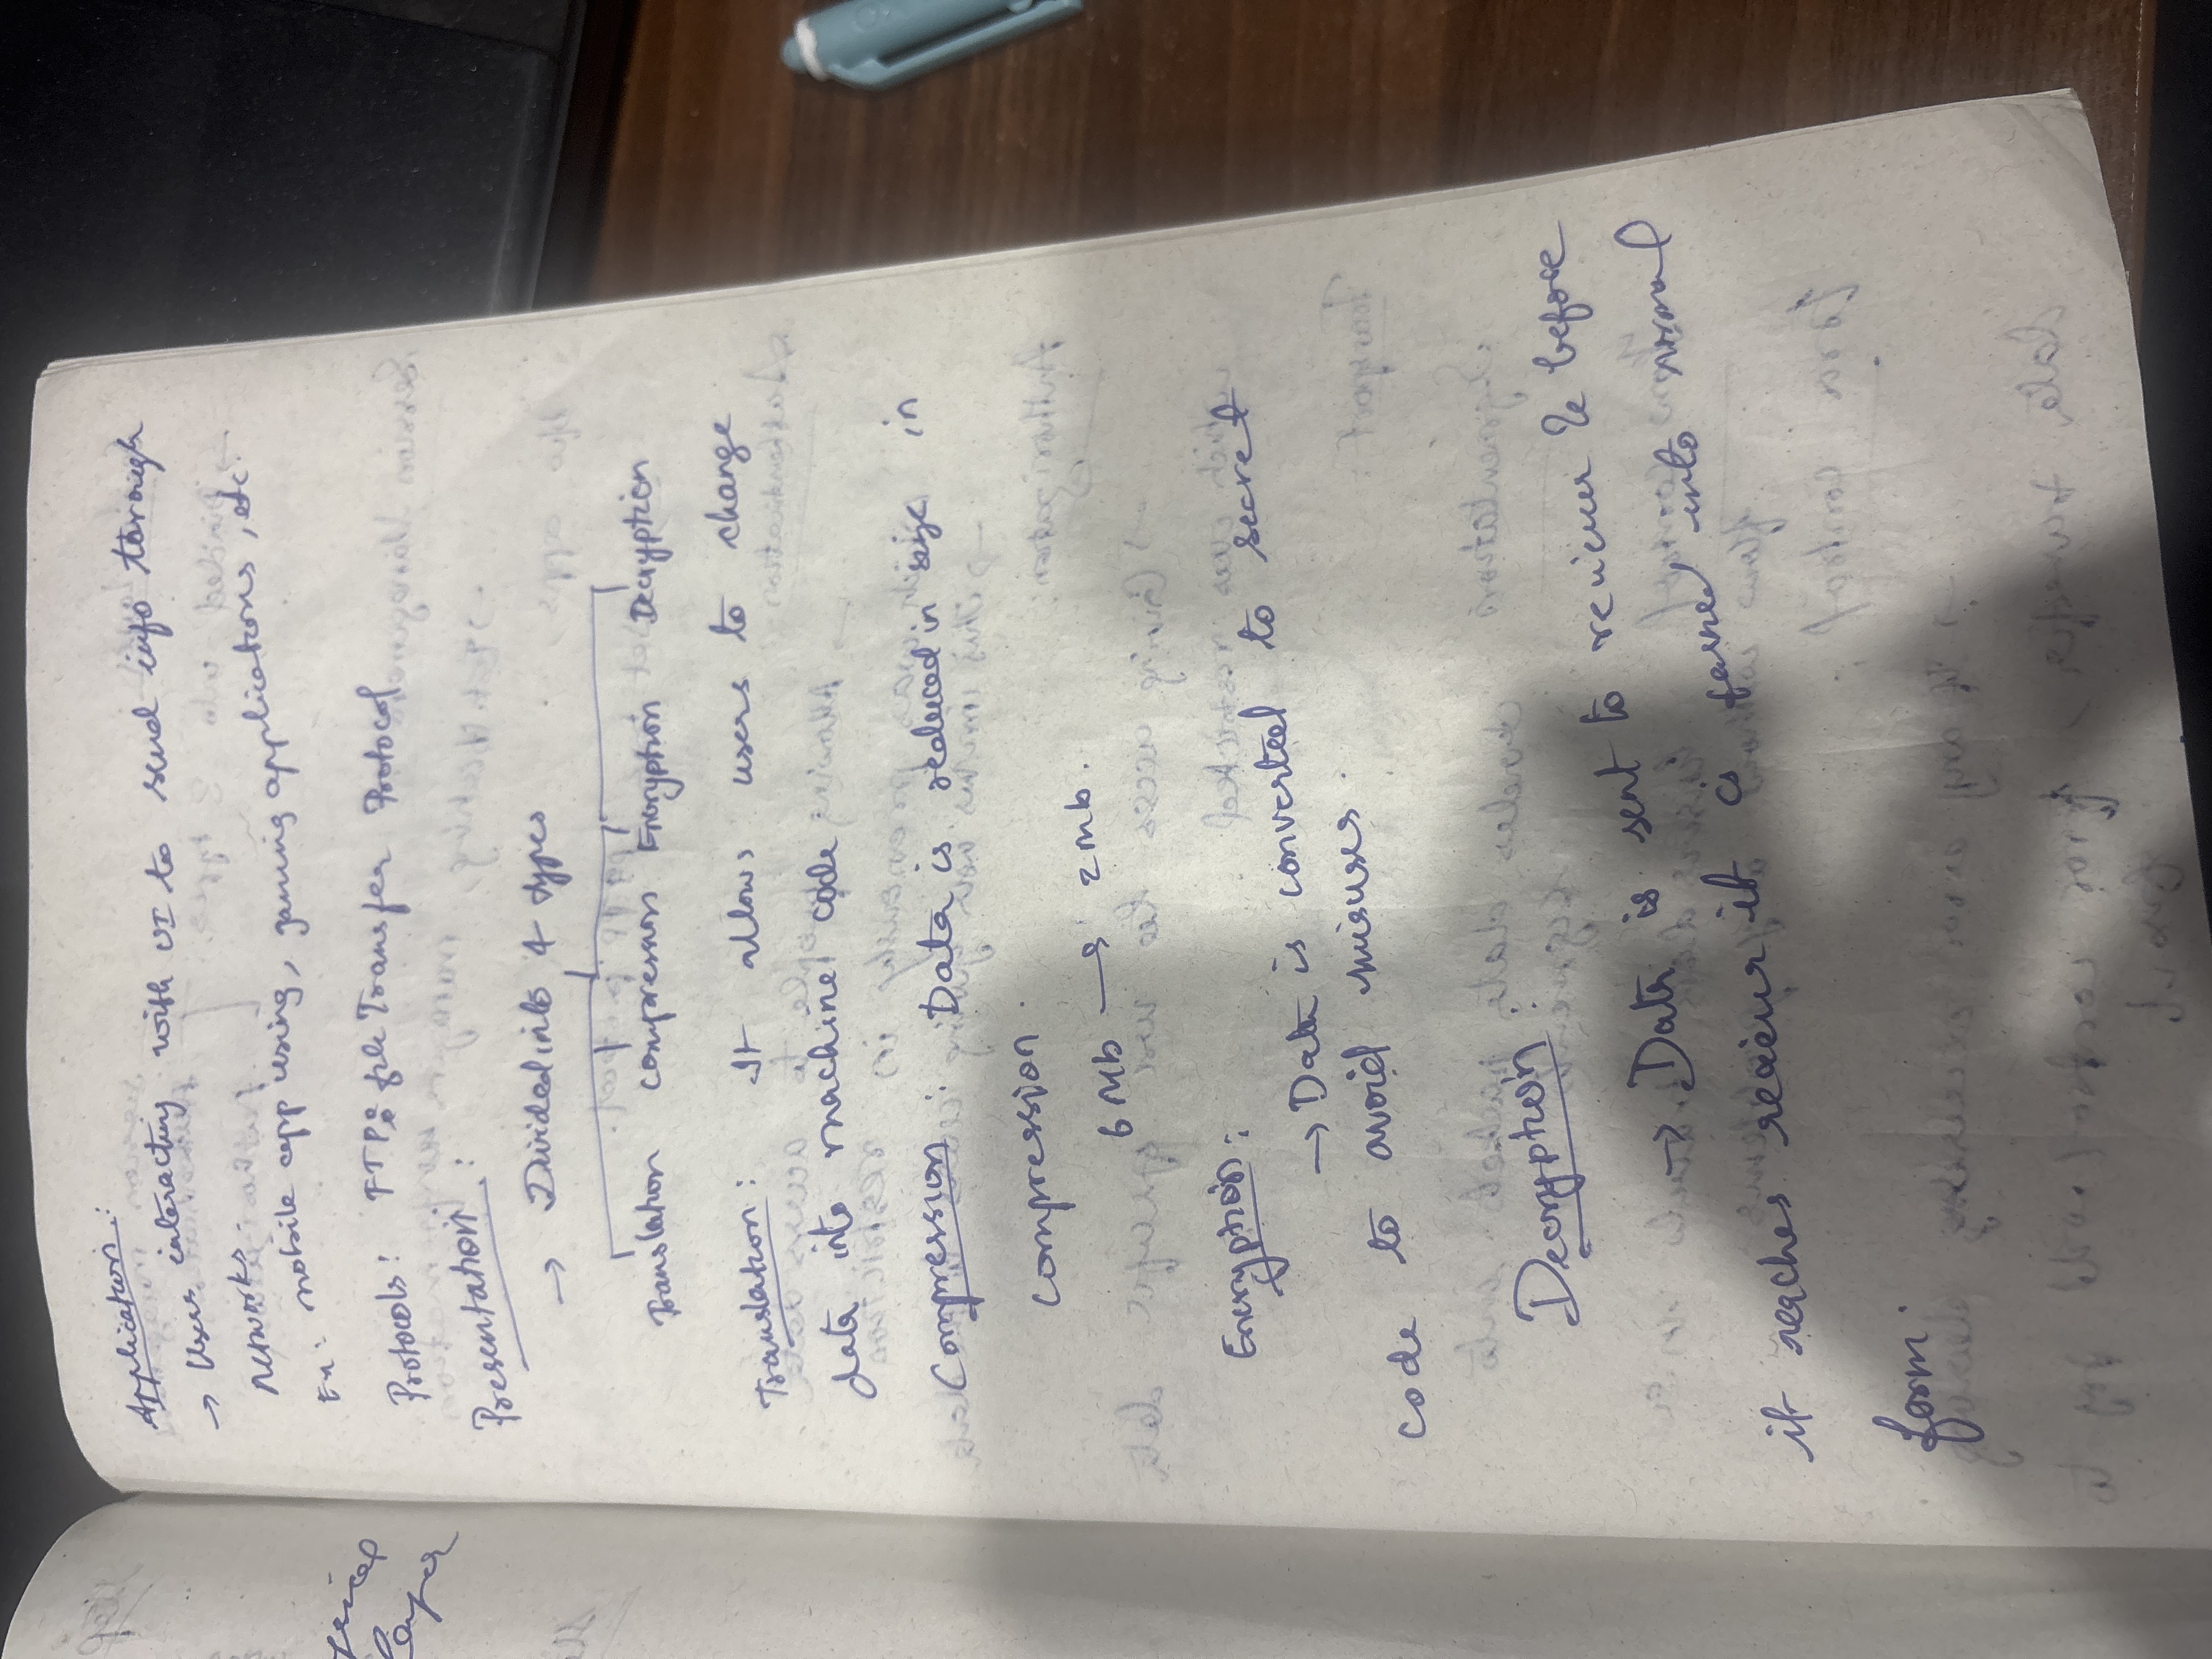 Application:
→ Uses interacting with UI to send info torough
networks.
En: mobile app using, gaming applications, etc.
Protocols: FTP: file Transfer Protocol
Presentation:
→ Divided into 4 types
Translation compression Encryption Decryption
Translation: It allows users to change
data into machine code
Compression: Data is reduced in size in
compression.
6 Mb → 2 mb.
Encryption:
→ Data is converted to secret
code to avoid misuses.
Decryption:
→ Data is sent to reciever & before
it reaches reciever it is turned into normal
form.
Layer